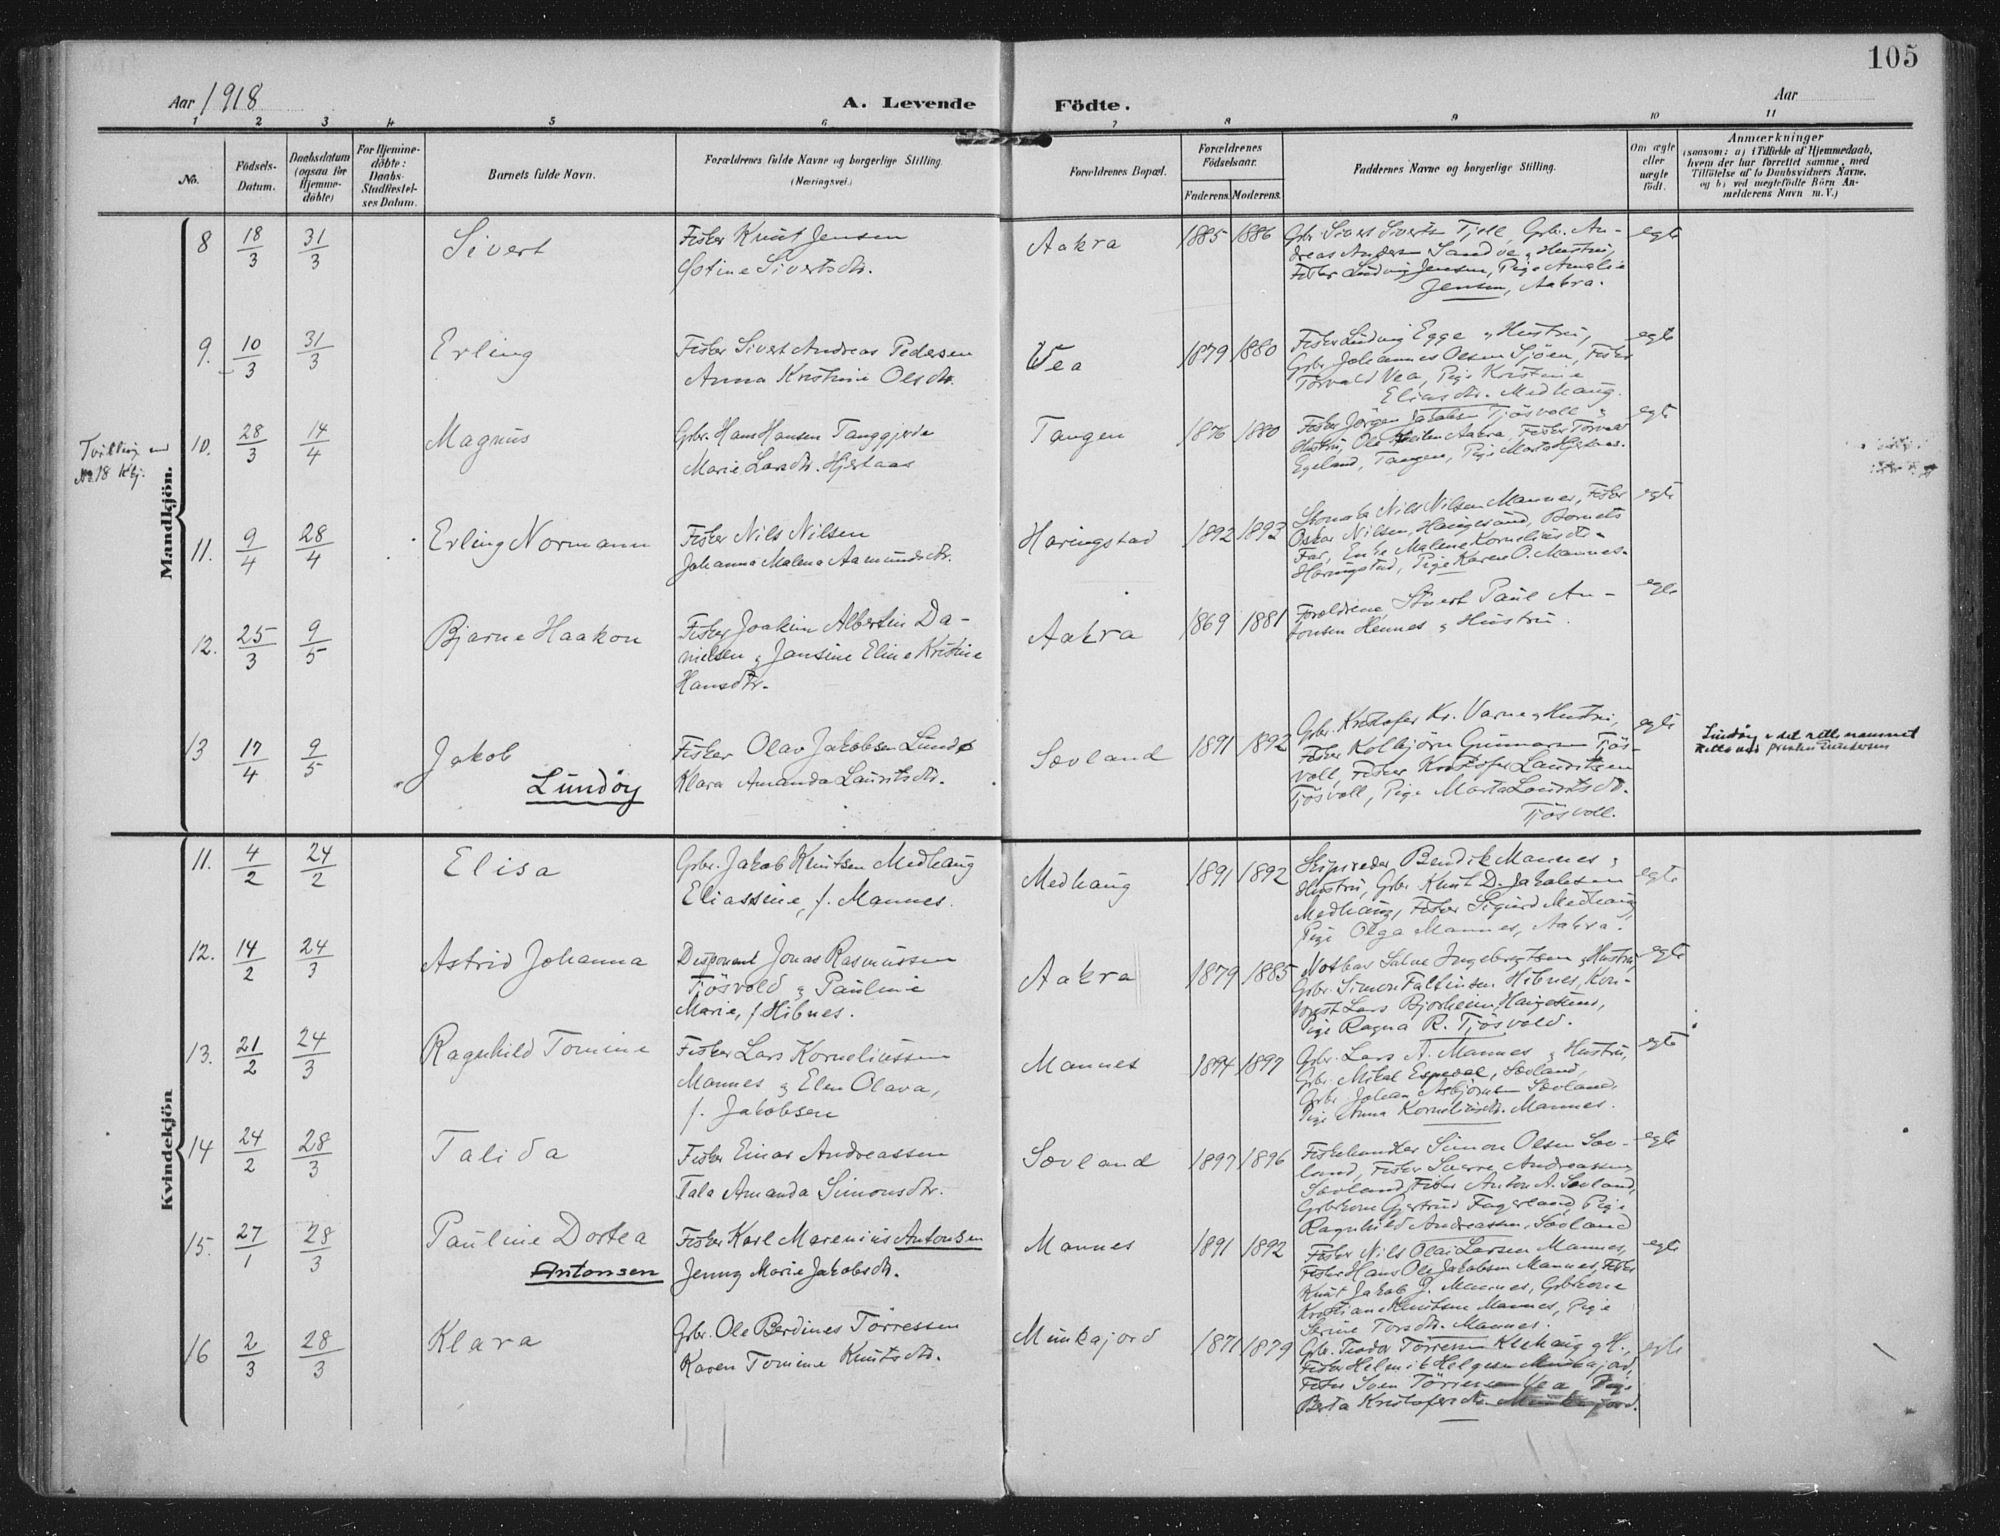 105
Aar 1918
A. Levende Födte.
Aar
1 2 3 4 5 6 7 8 9 10 11
No.
Födsels-
Datum.
Daabsdatum
(ogsaa for
Hjemme-
döbte)
For Hjemme-
döbte:
Daabs-
Stadfæstel-
ses Datum.
Barnets fulde Navn.
Forældrenes fulde Navne og borgerlige Stilling.
(Næringsvei.)
Forældrenes Bopæl.
Forældrenes
Födselsaar.
Faderens. Moderens.
Faddernes Navne og borgerlige Stilling.
Om ægte
eller
uægte
födt.
Anmærkninger
(saasom: a) i Tilfælde af Hjemmedaab,
hvem der har forrettet samme, med
Tilföielse af to Daabsvidners Navne,
og b) ved uægtefödte Börn An-
melderens Navn m. V.)
Mandkjön.
8 18/3 31/3 Sivert
Fisker Knut Jensen
Østine Sivertsdtr.
Aakra 1885 1886
Gbr. Sivert Sivertsen Tjell, Gbr. An-
dreas Andersen Sandve & Hustru,
Fisker Ludvig Jensen, Pige Amalie
Jensen, Aakra.
egte
9. 10/3 31/3 Erling
Fisker Sivert Andreas Pedersen
Anna Kristine Olsdtr.
Vea 1879 1880
Fisker Ludvig Egge & Hustru,
Gbr. Johannes Olsen Sjöen, Fisker
Torvald Vea, Pige Kristine
Eliasdtr. Medhaug.
egte
Tvilling med
No. 18 Kkj.
10. 28/3 14/4 Magnus
Gbr. Hans Hansen Tanggjerde
Marie Larsdtr. Hjertaas
Tangen 1876 1880
Fisker Jörgen Jakobsen Tjösvoll &
Hustru, Ole Aakra, Fisker Torvald
Egeland, Tangen, Pige Marta Hjertaas.
egte
11. 9/4 28/4 Erling Normann
Fisker Nils Nilsen
Johanna Malena Aamundsdtr.
Haringstad 1892 1893
Nils Nilsen Mannes, Fisker
Oskar Nilsen, Haugesund, Barnets
Far, Enke Malene Korneliusdtr.
Haringstad, Pige Karen O. Mannes.
egte
12. 25/3 9/5 Bjarne Haakon
Fisker Joakim Albertin Da-
nielsen & Jensine Eline Kristine
Hansdtr.
Aakra 1869 1881
Forældrene, Stuert Paul An-
tonsen Hemnes & Hustru.
egte
13 17/4 9/5 Jakob
Lundöy
Fisker Olav Jakobsen Lundø
Klara Amanda Lauritsdtr.
Sævland 1891 1892
Gbr. Kristofer Kr. Varne & Hustru,
Fisker Kolbjörn Gunnarsen Tjös-
voll, Fisker Kristofer Lauritsen
Tjösvoll, Pige Marta Lauritsdtr.
Tjösvoll.
egte
Lundöy e det rette navnet
Rettet ved presten
Kvindekjön
11. 4/2 24/2 Elisa
Gbr. Jakob Knutsen Medhaug
Eliassine, f. Mannes.
Medhaug 1891 1892
Skipsreder Bendik Mannes &
Hustru, Gbr. Knut D. Jakobsen
Medhaug, Fisker Sigurd Medhaug,
Pige Olga Mannes, Aakra.
egte
12. 14/2 24/3 Astrid Johanna
Disponent Jonas Rasmussen
Tjösvold & Pauline
Marie, f. Hibnes.
Aakra 1879 1885
Notbas Salve Ingebretsen & Hustru,
Gbr. Simon Faltinsen Hibnes, Kon-
torist Lars Bjorheim, Haugesund,
Pige Ragna R. Tjösvold.
egte
13. 21/2 24/3 Ragnhild Tomine
Fisker Lars Korneliussen
Mannes & Elen Olava,
f. Jakobsen
Mannes 1894 1897
Gbr. Lars A. Mannes & Hustru,
Gbr. Mikal Espedal, Sævland,
Gbr. Johan Asbjörnsen Sævland,
Pige Anna Korneliusdtr. Mannes.
egte
14 24/2 28/3 Talida
Fisker Einar Andreassen
Tala Amanda Simonsdtr.
Sævland 1897 1896
Fiskehandler Simon Olsen Sæv-
land, Fisker Sverre Andreassen
Sævland, Fisker Anton A. Sævland,
Gbrkone Gjertrud Fagerland, Pige
Ragnhild Andreassen, Sævland
egte
15. 27/1 28/3 Pauline Dortea
Antonsen
Fisker Karl Marenius Antonsen
Jenny Marie Jakobsdtr.
Mannes 1891 1892
Fisker Nils Olai Larsen Mannes,
Fisker Hans Ole Jakobsen Mannes, Fisker
Knut Jakob J. Mannes, Gbrkone
Kristiane Knutsen Mannes, Pige
Serine Torsdtr. Mannes.
egte
16 2/3 28/3 Klara
Gbr. Ole Berdines Törressen
Karen Tomine Knutsdtr.
Munkajord 1871 1879
Gbr. Teodor Törressen Klehaug & H.,
Fisker Helgesen Munkajord,
Fisker Sven Törressen Vea, Pige
Berta Kristofersdtr. Munkajord.
egte